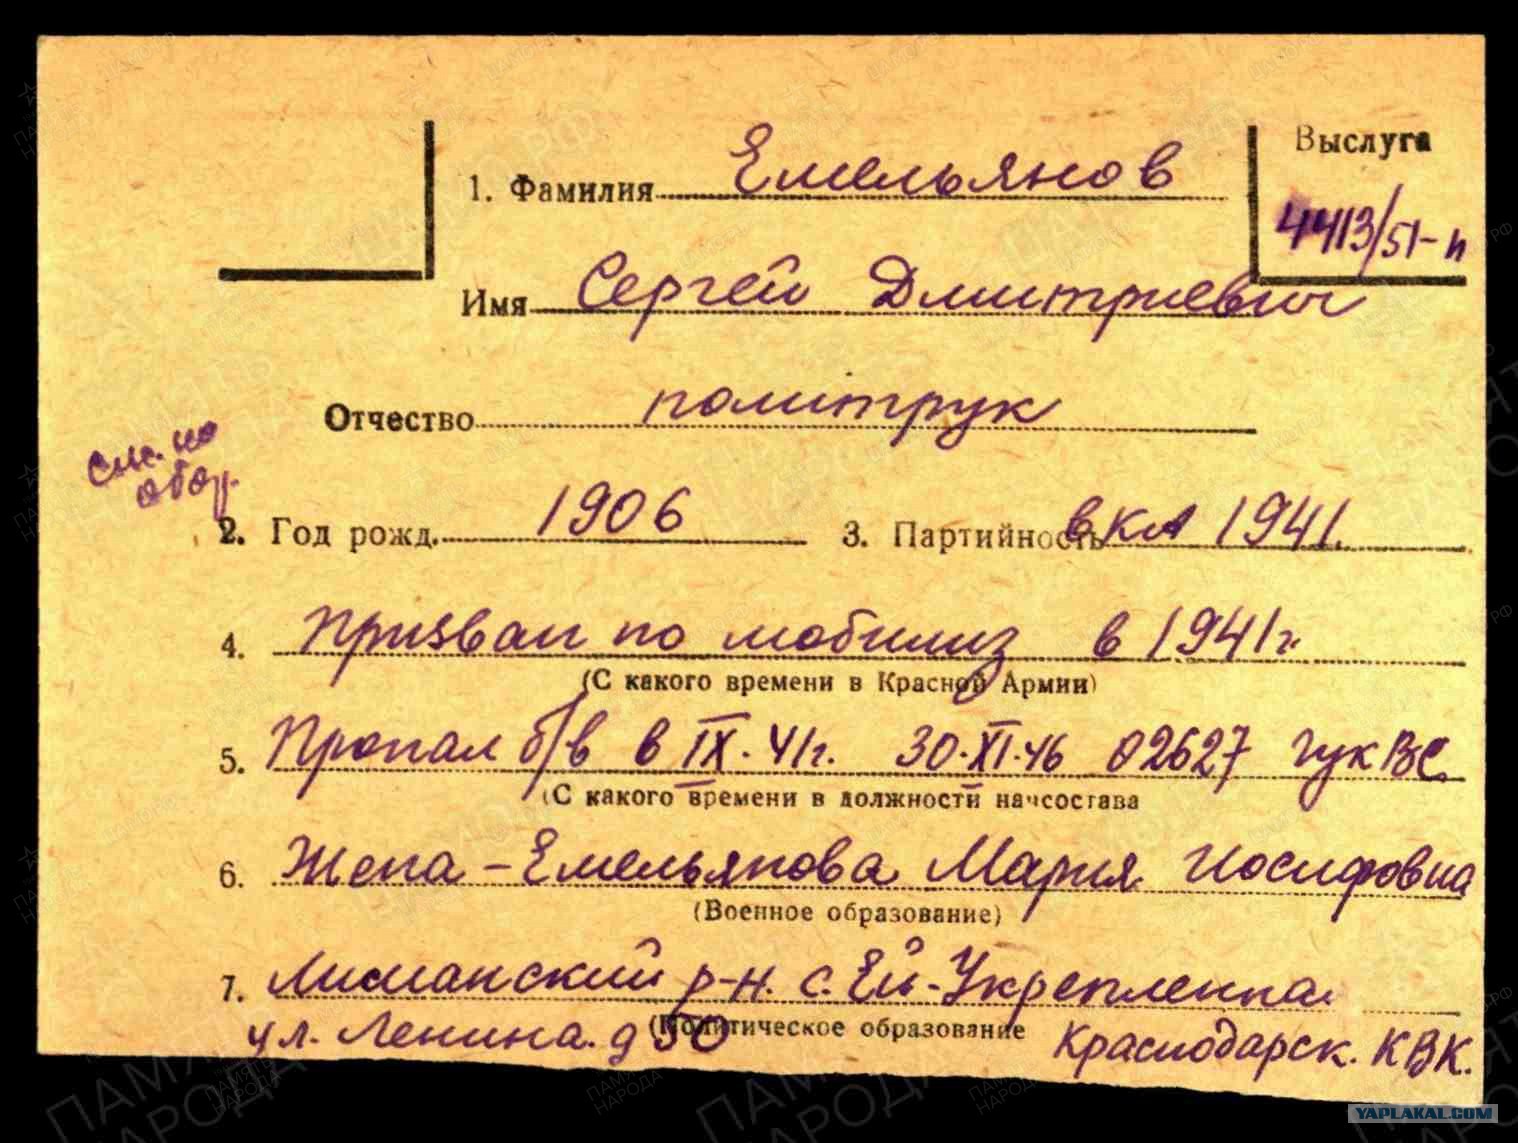 Выслуга
1. Фамилия Емельянов
4413/51-п
Имя Сергей Дмитриевич
Отчество политрук
См. на обор.
2. Год рожд. 1906 3. Партийность в КА 1941.
4. Призван по мобилиз в 1941г.
(С какого времени в Красной Армии)
5. Пропал б/в в IX. 41г. 30.XI.46 02627 ГУК ВС
(С какого времени в должности начсостава
6. Жена - Емельянова Мария Иосифовна
(Военное образование)
7. Лиманский р-н. с. Ей-Укрепленная
(Политическое образование
ул. Ленина. д 50 Краснодарск. КВК.
YAPLAKAL.COM